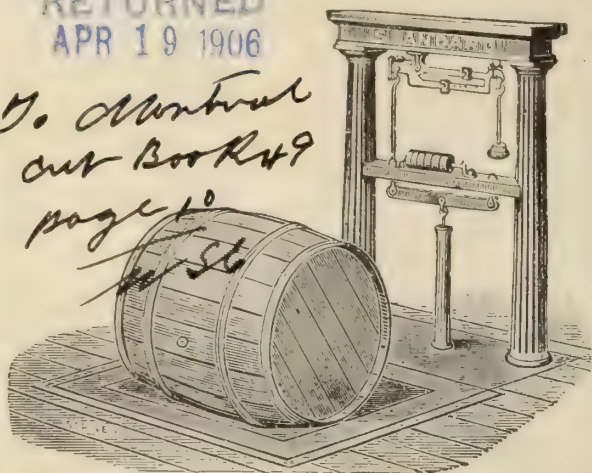 RETURNED
APR 19 1906
To Montreal
cut Book 49
page 10